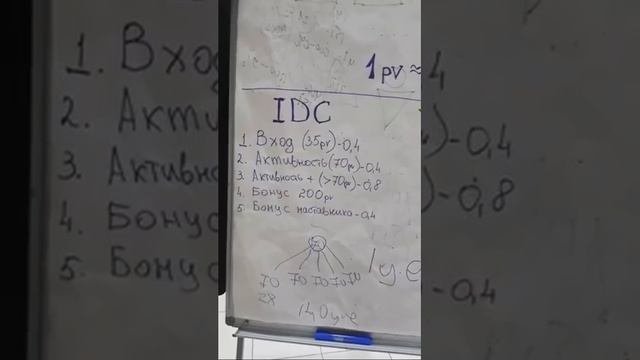 1 pv ≈
IDC
1. Вход (35pv)-0,4
2. Активность (70pv)-0,4
3. Активность + (>70pv)-0,8
4. Бонус 200pv
5. Бонус наставника-0,4
70 70 70 70 70
28
140 у.е
1 у.е